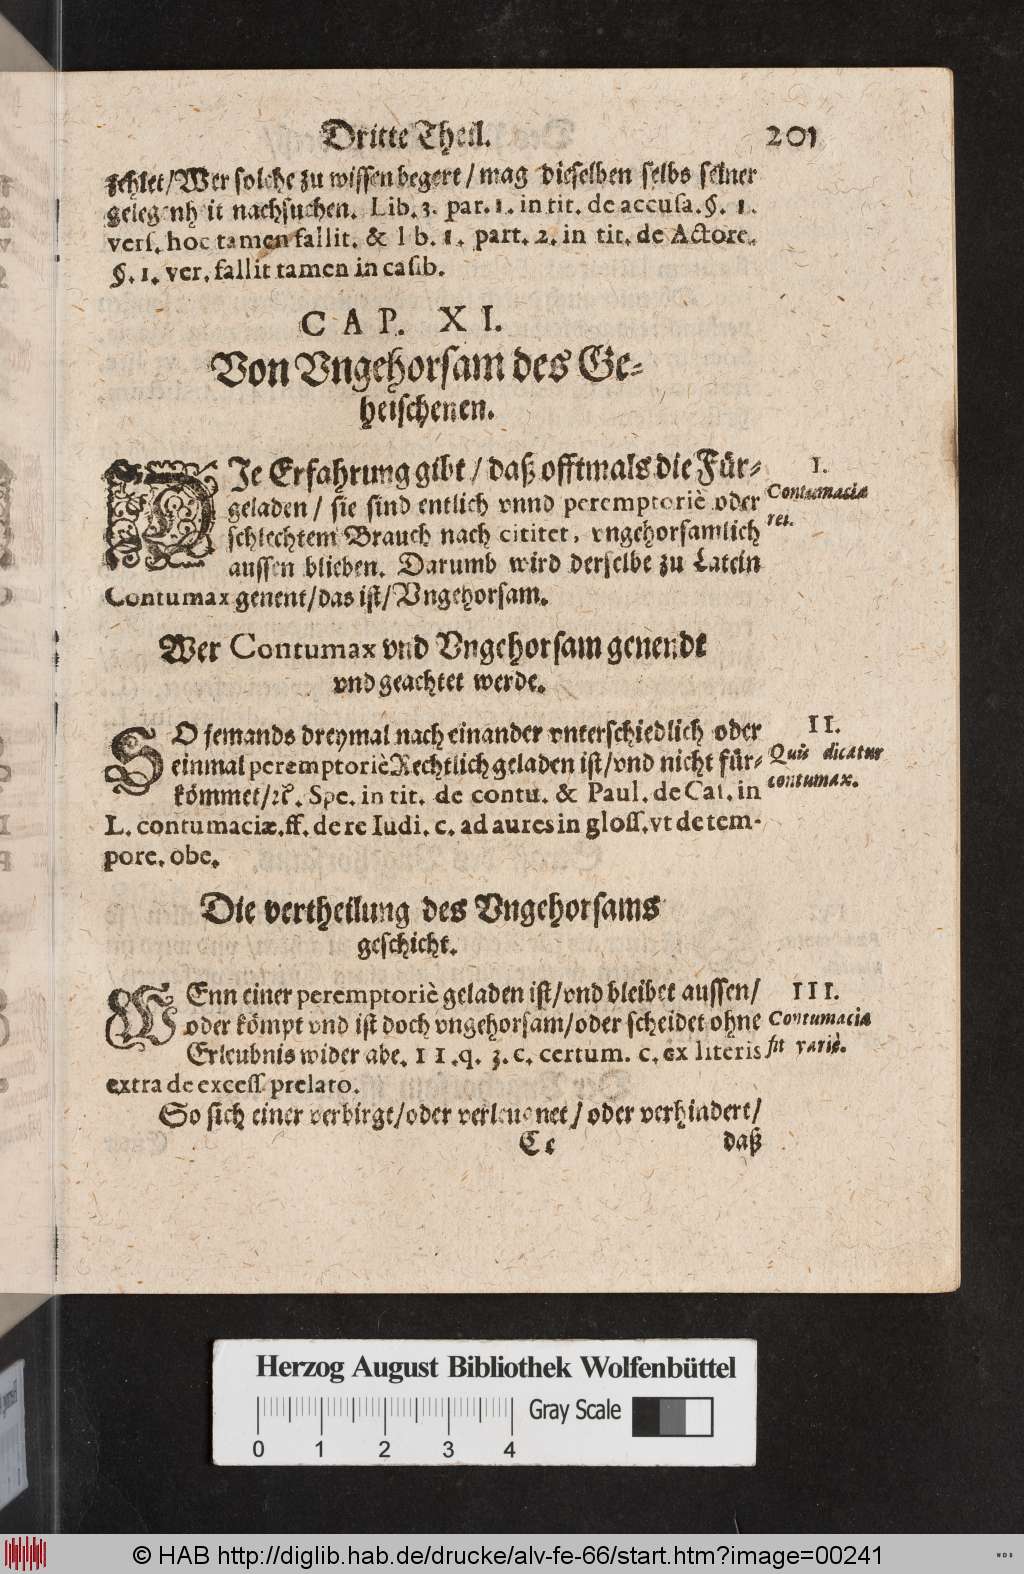 Dritte Theil. 201
zehlet/Wer solche zu wissen begert/mag dieselben selbs seiner
gelegenheit nachsuchen. Lib. 3. par. 1. in tit. de accusa. §. 1.
vers. hoc tamen fallit. & lib. 1. part. 2. in tit. de Actore.
§. 1. ver. fallit tamen in casib.
CAP. XI.
Von Vngehorsam des Ge-
heischenen.
DIe Erfahrung gibt / daß offtmals die Für-
geladen / sie sind entlich vnnd peremptoriè oder
schlechtem Brauch nach cititet, vngehorsamlich
aussen blieben. Darumb wird derselbe zu Latein
Contumax genent/das ist/Vngehorsam.
I.
Contumacia
rei.
Wer Contumax vnd Vngehorsam genendt
vnd geachtet werde.
SO jemands dreymal nach einander vnterschiedlich oder
einmal peremptoriè Rechtlich geladen ist/vnd nicht für-
kömmet/ꝛc. Spe. in tit. de contu. & Paul. de Cat. in
L. contumaciæ. ff. de re Iudi. c. ad aures in gloss. vt de tem-
pore. obe.
II.
Quis dicatur
contumax.
Die vertheilung des Vngehorsams
geschicht.
WEnn einer peremptoriè geladen ist/vnd bleibet aussen/
oder kömpt vnd ist doch vngehorsam/oder scheidet ohne
Erleubnis wider abe. 11. q. 3. c. certum. c. ex literis
extra de excess. prelato.
III.
Contumacia
fit variè.
So sich einer verbirgt/oder verleugnet/ oder verhindert/
Cc daß
Herzog August Bibliothek Wolfenbüttel
Gray Scale
0 1 2 3 4
© HAB http://diglib.hab.de/drucke/alv-fe-66/start.htm?image=00241